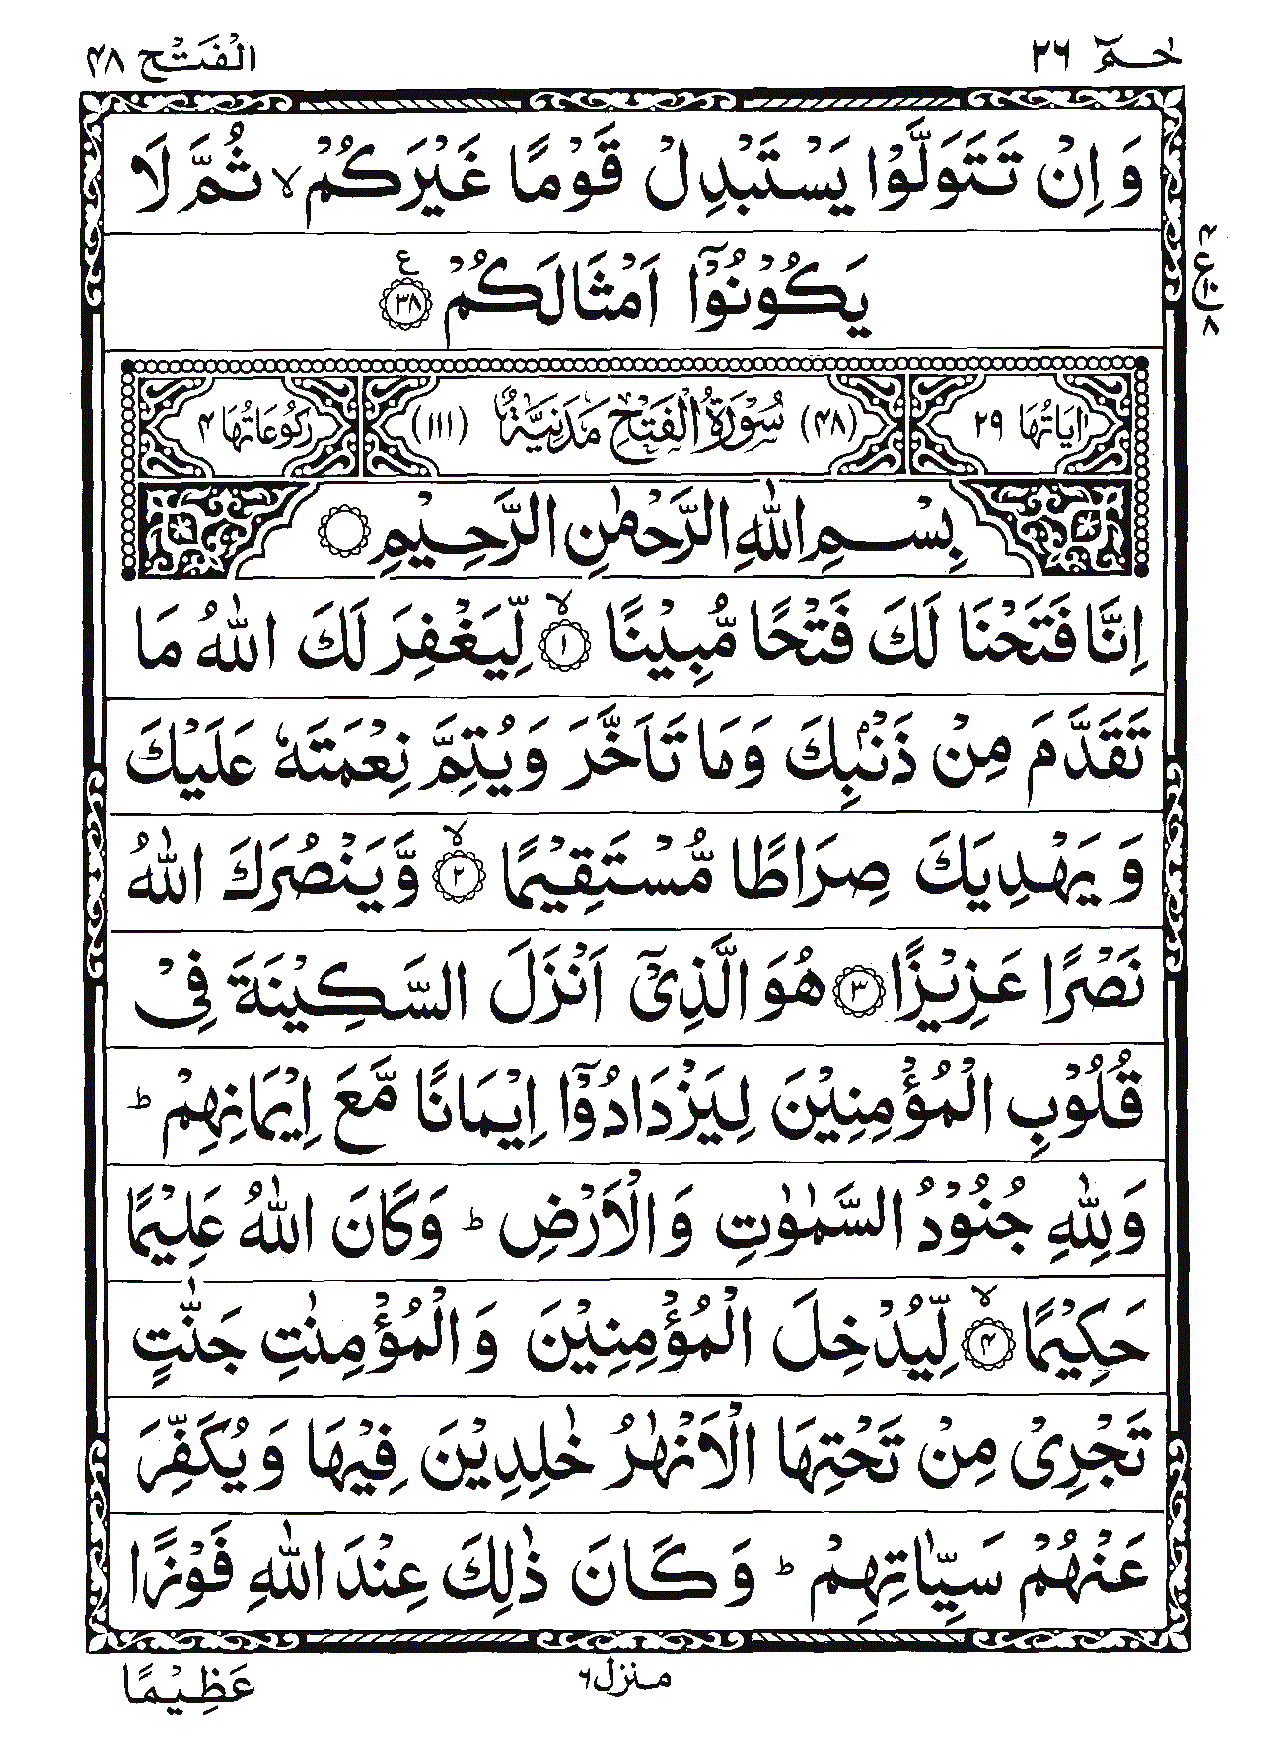 حٰمٓ ٢٦
الْفَتْح ٤٨
وَ اِنْ تَتَوَلَّوْا يَسْتَبْدِلْ قَوْمًا غَيْرَكُمْ ۙ ثُمَّ لَا
يَكُوْنُوْۤا اَمْثَالَكُمْ ﴿٣٨﴾ ع
٤
ع
١٠
٨
اٰيَاتُهَا ٢٩
(٤٨) سُوْرَةُ الْفَتْحِ مَدَنِيَّةٌ (١١١)
رُكُوْعَاتُهَا ٤
بِسْمِ اللّٰهِ الرَّحْمٰنِ الرَّحِيْمِ
اِنَّا فَتَحْنَا لَكَ فَتْحًا مُّبِيْنًا ﴿١﴾ ۙ لِّيَغْفِرَ لَكَ اللّٰهُ مَا
تَقَدَّمَ مِنْ ذَنْۢبِكَ وَمَا تَاَخَّرَ وَيُتِمَّ نِعْمَتَهٗ عَلَيْكَ
وَ يَهْدِيَكَ صِرَاطًا مُّسْتَقِيْمًا ﴿٢﴾ ۙ وَّيَنْصُرَكَ اللّٰهُ
نَصْرًا عَزِيْزًا ﴿٣﴾ هُوَ الَّذِيْۤ اَنْزَلَ السَّكِيْنَةَ فِيْ
قُلُوْبِ الْمُؤْمِنِيْنَ لِيَزْدَادُوْۤا اِيْمَانًا مَّعَ اِيْمَانِهِمْ ؕ
وَلِلّٰهِ جُنُوْدُ السَّمٰوٰتِ وَالْاَرْضِ ؕ وَكَانَ اللّٰهُ عَلِيْمًا
حَكِيْمًا ﴿٤﴾ ۙ لِّيُدْخِلَ الْمُؤْمِنِيْنَ وَالْمُؤْمِنٰتِ جَنّٰتٍ
تَجْرِيْ مِنْ تَحْتِهَا الْاَنْهٰرُ خٰلِدِيْنَ فِيْهَا وَيُكَفِّرَ
عَنْهُمْ سَيِّاٰتِهِمْ ؕ وَكَانَ ذٰلِكَ عِنْدَ اللّٰهِ فَوْزًا
منزل ٦
عَظِيْمًا